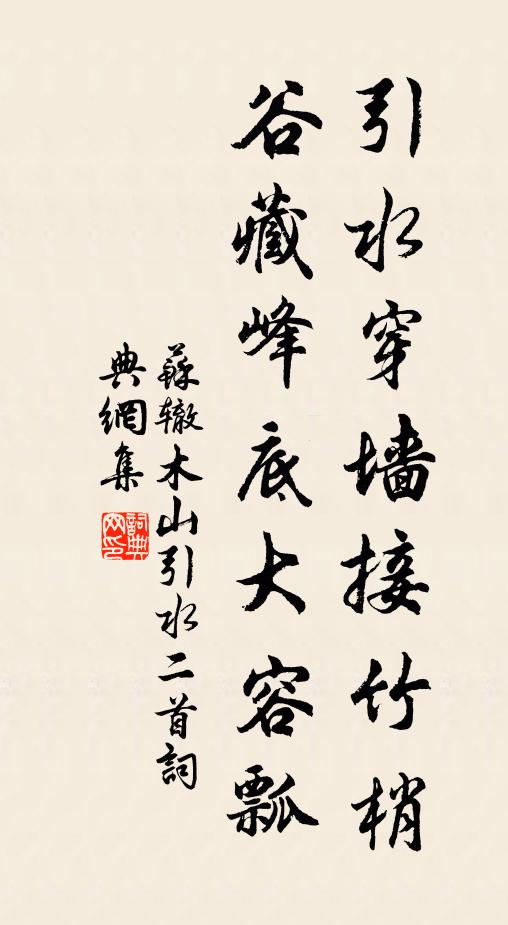 引水穿墙接竹梢
谷藏峰底大容瓢
蘇辙木山引水二首詞
典網集
詞典网印